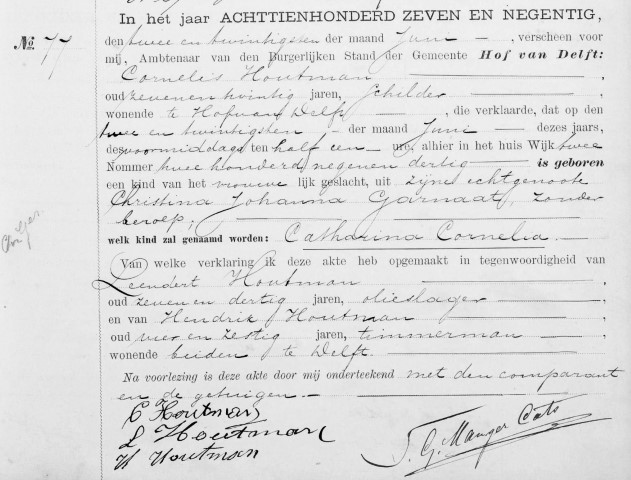 In het jaar ACHTTIENHONDERD ZEVEN EN NEGENTIG,
No. 77
den twee en twintigsten der maand Juni, verscheen voor
mij, Ambtenaar van den Burgerlijken Stand der Gemeente Hof van Delft:
Cornelis Houtman
oud zeven en twintig jaren, schilder
wonende te Hof van Delft, die verklaarde, dat op den
twee en twintigsten der maand Juni dezes jaars,
des voormiddags ten half een ure, alhier in het huis Wijk twee
Nommer twee honderd negen en dertig is geboren
een kind van het vrouwelijk geslacht, uit zijne echtgenoote
Christina Johanna Garnaat, zonder
beroep;
welk kind zal genaamd worden: Catharina Cornelia.
Van welke verklaring ik deze akte heb opgemaakt in tegenwoordigheid van
Leendert Houtman
oud zeven en dertig jaren, olieslager
en van Hendrik Houtman
oud vier en zestig jaren, timmerman
wonende beiden te Delft.
Na voorlezing is deze akte door mij onderteekend met den comparant
en de getuigen.
C Houtman
L Houtman
H Houtman
J. G. Mauger Cats